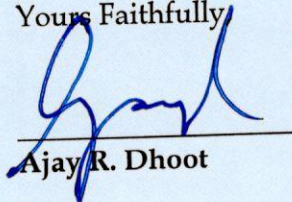 Yours Faithfully,
Ajay R. Dhoot